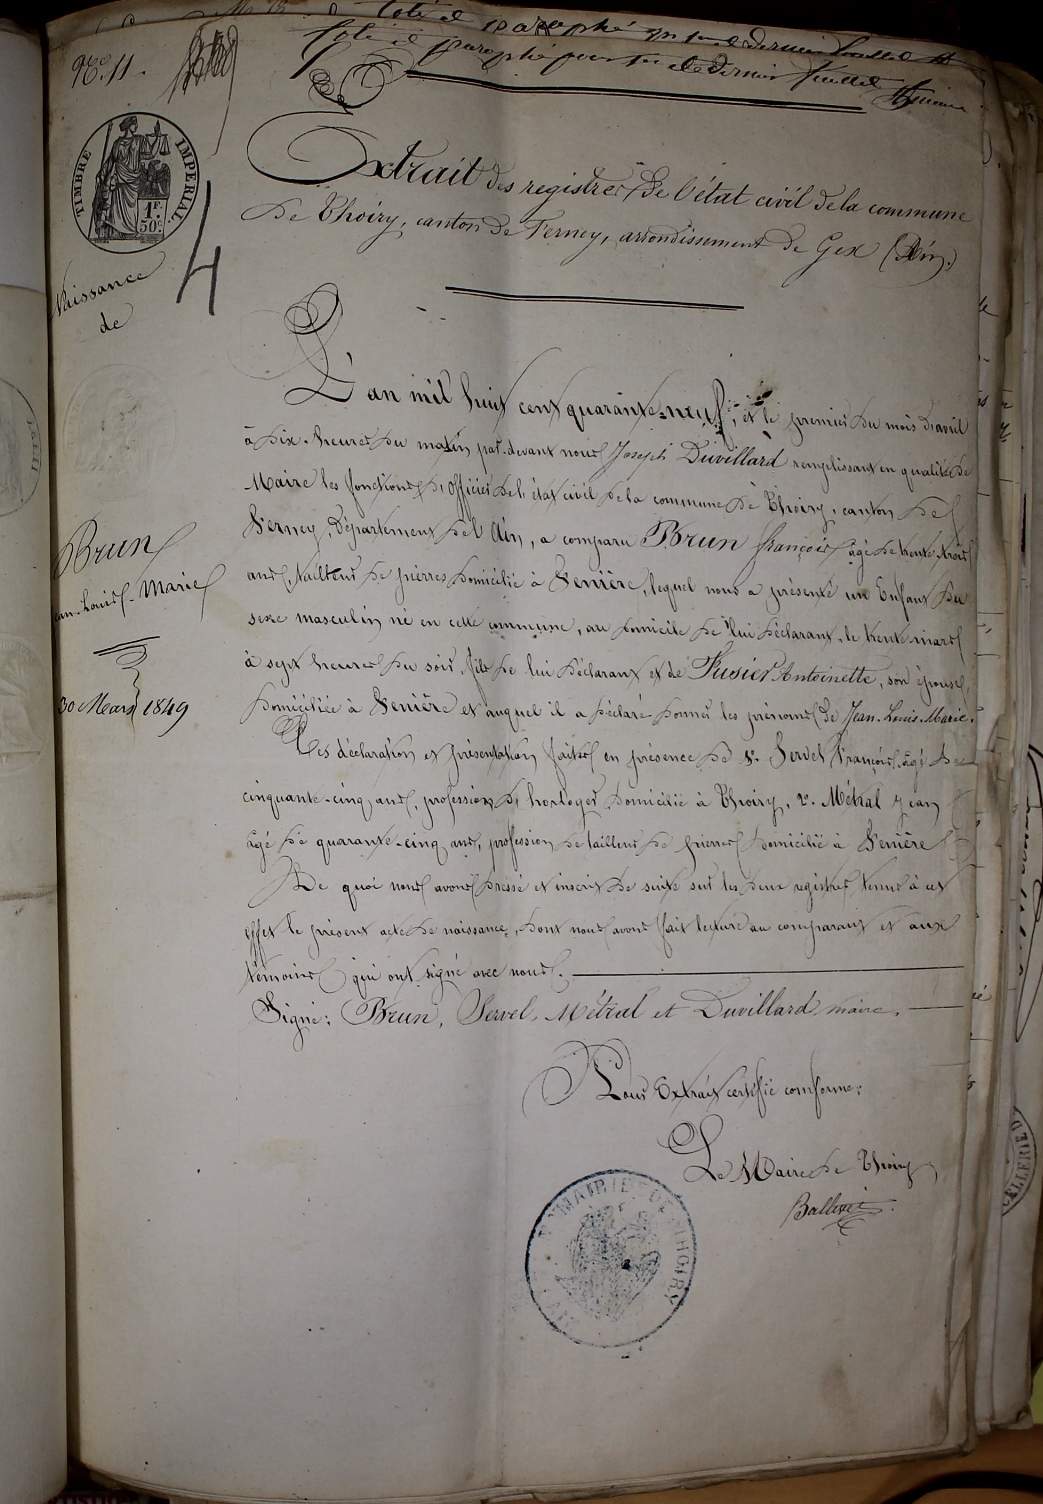 Coté et paraphé
Coté et paraphé pour 1er et dernier feuillet
No. 11.
TIMBRE IMPERIAL.
1F.
50c.
4
Extrait des registres de l'état civil de la commune
de Thoiry, canton de Ferney, arrondissement de Gex (Ain.)
Naissance
de
L'an mil huit cent quarante-neuf, et le premier du mois d'avril
à dix heures du matin par-devant nous Joseph Duvillard remplissant en qualité de
Maire les fonctions d'Officier de l'état civil de la commune de Thoiry, canton de
Ferney, Département de l'Ain, a comparu Brun François, âgé de trente-trois
ans, tailleur de pierres domicilié à Fenière, lequel nous a présenté un Enfant du
sexe masculin né en cette commune, au domicile de lui déclarant, le trente mars
à sept heures du soir, fils de lui déclarant et de Fusier Antoinette, son épouse,
domiciliée à Fenière et auquel il a déclaré donner les prénoms de Jean-Louis-Marie.
Brun
Jean-Louis-Marie
30 Mars 1849
Ces déclaration et présentation faites en présence de 1o. Servel François, âgé de
cinquante-cinq ans, profession d'horloger domicilié à Thoiry, 2o. Métral Jean
âgé de quarante-cinq ans, profession de tailleur de pierres domicilié à Fenière
De quoi nous avons dressé et inscrit de suite sur les deux registres tenus à cet
effet le présent acte de naissance, dont nous avons fait lecture au comparant et aux
témoins qui ont signé avec nous.
Signé: Brun, Servel, Métral et Duvillard maire.
Pour Extrait certifié conforme:
Le Maire de Thoiry
MAIRIE DE THOIRY